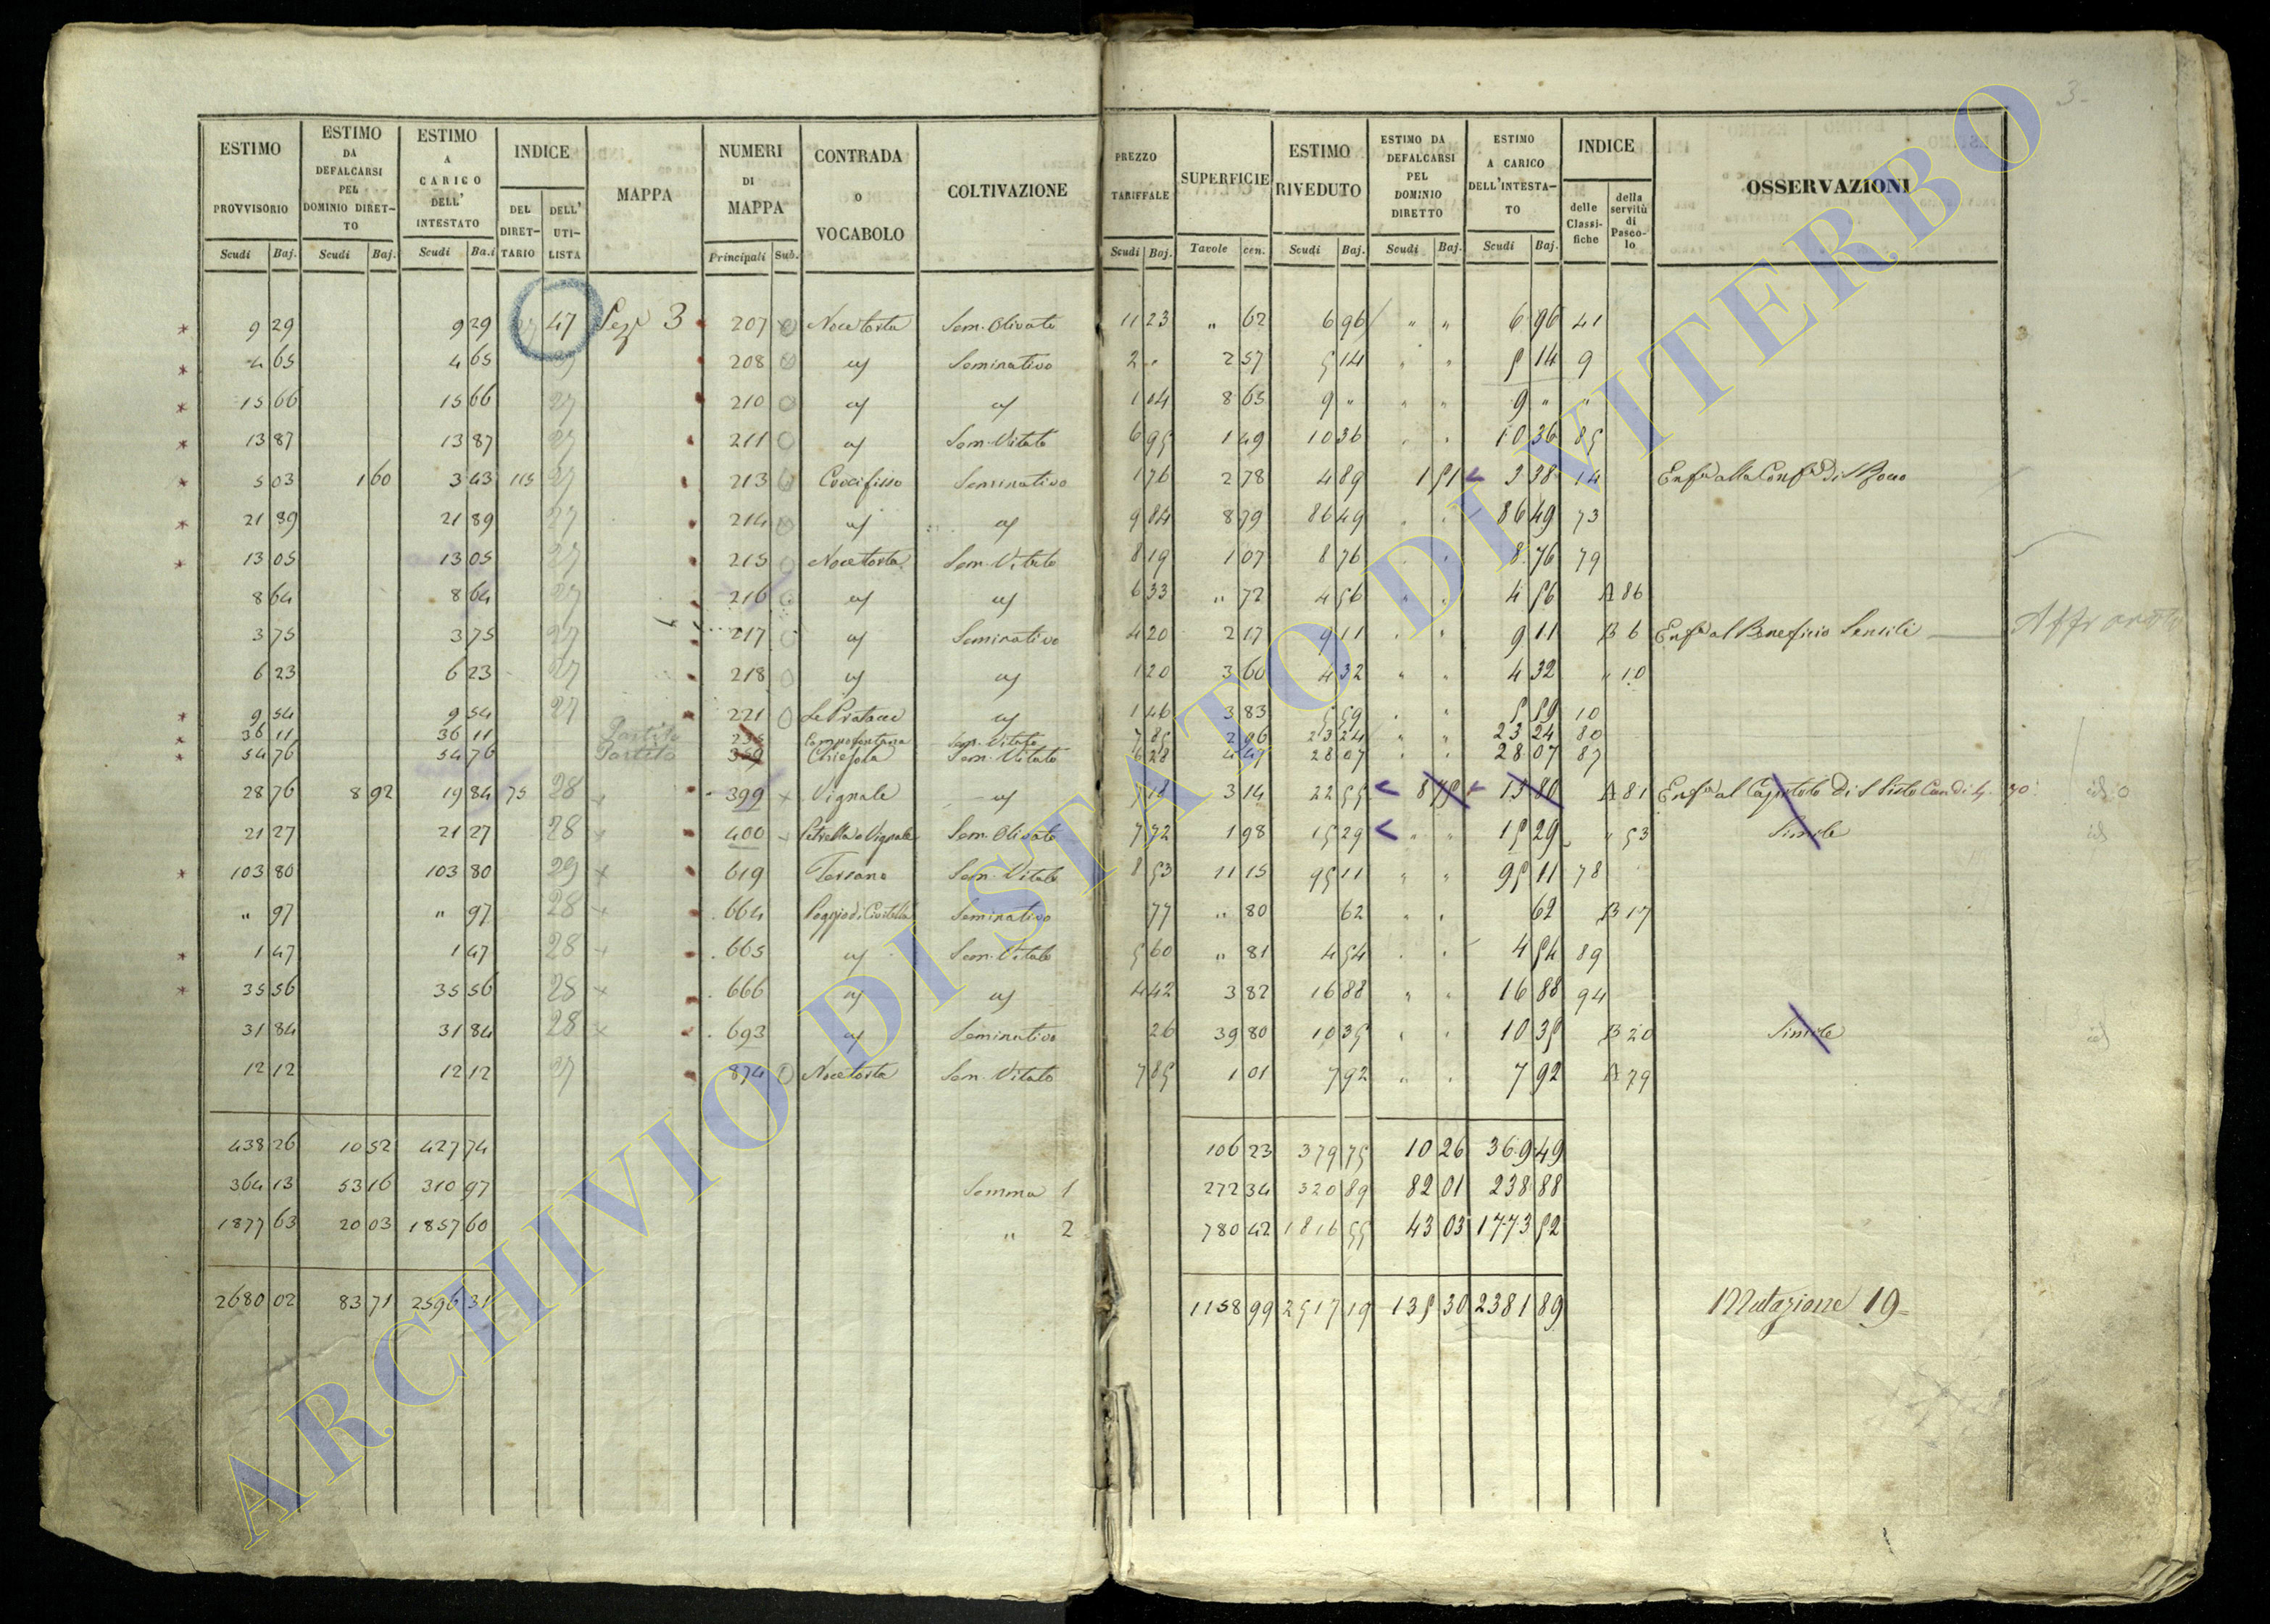 3
ESTIMO PROVVISORIO Scudi Baj. | ESTIMO DA DEFALCARSI PEL DOMINIO DIRET-TO Scudi Baj. | ESTIMO A CARICO DELL' INTESTATO Scudi Ba.i | INDICE DEL DIRET-TARIO DELL' UTI-LISTA | MAPPA | NUMERI DI MAPPA Principali Sub. | CONTRADA O VOCABOLO | COLTIVAZIONE | PREZZO TARIFFALE Scudi Boj. | SUPERFICIE Tavole cen. | ESTIMO RIVEDUTO Scudi Baj. | ESTIMO DA DEFALCARSI PEL DOMINIO DIRETTO Scudi Baj. | ESTIMO A CARICO DELL'INTESTA-TO Scudi Baj. | INDICE delle Classi-fiche della servitù di Pasco-lo | OSSERVAZIONI
* 9 29 9 29 47 Sez.e 3 207 Nocetosta Sem. Olivato 11 23 " 62 6 96 " " 6 96 41
* 4 65 4 65 208 Seminativo 2 " 2 57 5 14 " " 5 14 9
* 15 66 15 66 27 210 1 04 8 65 9 " " " 9 " "
* 13 87 13 87 27 211 Sem. Vitato 6 95 1 49 10 36 " " 10 36 85
* 5 03 1 60 3 43 115 27 213 Crocifisso Seminativo 1 76 2 78 4 89 1 51 3 38 14
* 21 89 21 89 27 214 9 84 8 79 86 49 " " 86 49 73
* 13 05 13 05 27 215 Nocetosta Sem. Vitato 8 19 1 07 8 76 " " 8 76 79
8 64 8 64 27 216 6 33 " 72 4 56 " " 4 56 A 86
3 75 3 75 27 217 Seminativo 4 20 2 17 9 11 " " 9 11 B 6 Enf.a al Beneficio
6 23 6 23 27 218 1 20 3 60 4 32 " " 4 32 " 10
* 9 54 9 54 27 221 Le Pratacce 1 46 3 83 5 59 " " 5 59 10
* 36 11 36 11 Partito Campofontana Sem. Vitato 7 85 2 96 23 24 " " 23 24 80
* 54 76 54 76 Partito 359 Chiesola Sem. Vitato 6 28 4 47 28 07 " " 28 07 87
28 76 8 92 19 84 75 28 399 Vignale 3 14 22 55 13 80 A 81 Enf.a al Capitolo di S Sisto
21 27 21 27 28 400 Petrella o Vignale Sem. Olivato 7 72 1 98 15 29 " " 15 29 " 53 Simile
* 103 80 103 80 29 619 Sem. Vitato 8 53 11 15 95 11 " " 95 11 78
" 97 " 97 28 664 Poggio di Civitella Seminativo 77 " 80 62 " " 62 B 17
* 1 47 1 47 28 665 Sem. Vitato 5 60 " 81 4 54 " " 4 54 89
* 35 56 35 56 28 666 4 42 3 82 16 88 " " 16 88 94
31 84 31 84 28 693 Seminativo 26 39 80 10 35 " " 10 35 B 20 Simile
12 12 12 12 27 874 Nocetosta Sem. Vitato 7 85 1 01 7 92 " " 7 92 A 79
438 26 10 52 427 74 106 23 379 75 10 26 369 49
364 13 53 16 310 97 Somma 1 272 34 320 89 82 01 238 88
1877 63 20 03 1857 60 " 2 780 42 1816 55 43 03 1773 52
2680 02 83 71 2596 31 1158 99 2517 19 135 30 2381 89 Mutazione 19
ARCHIVIO DI STATO DI VITERBO